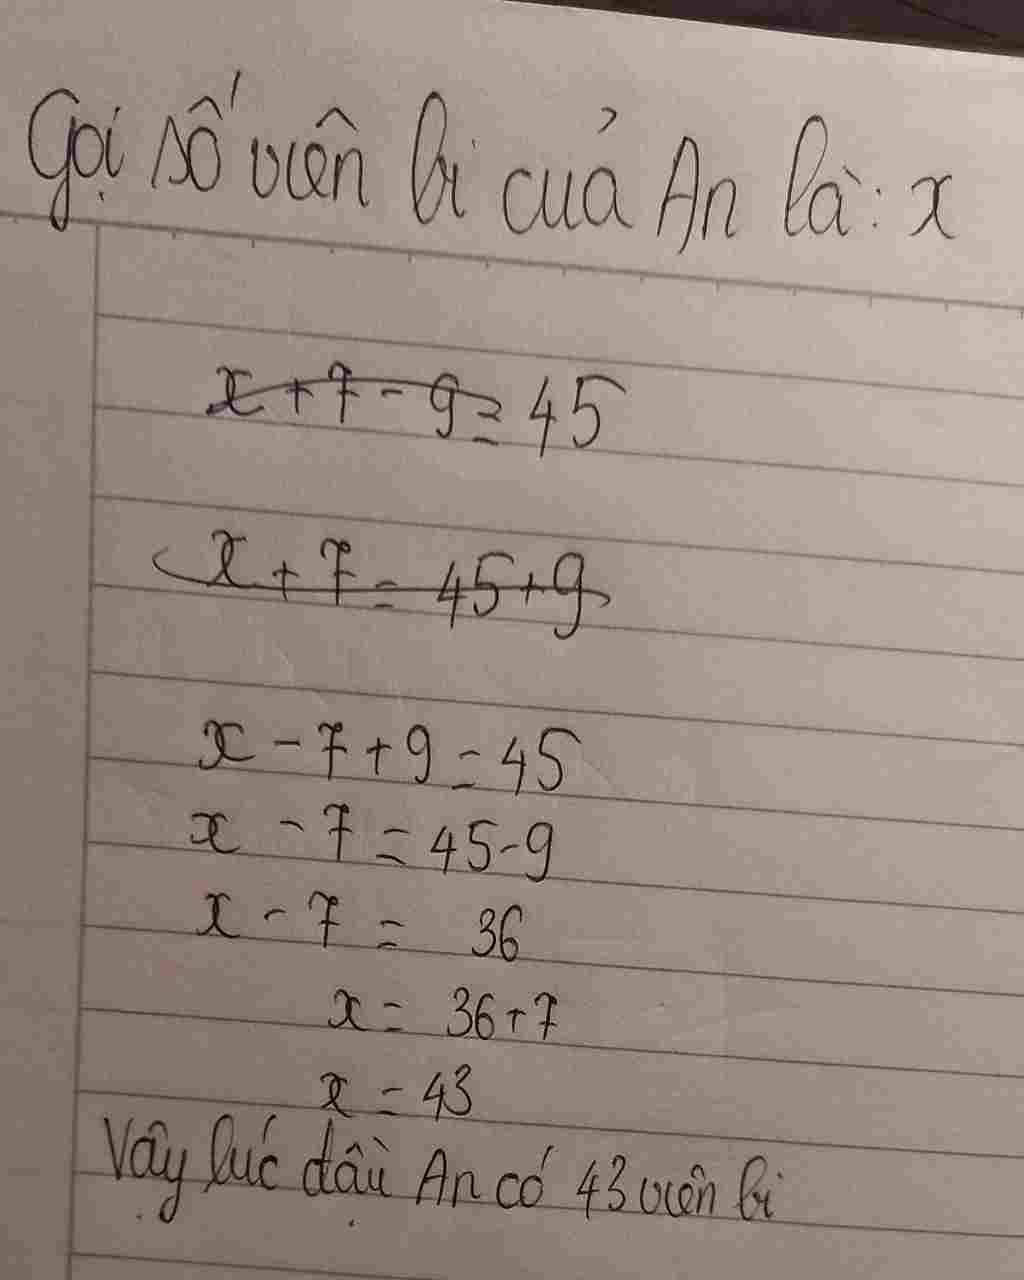 Gọi số viên bi của An là: x
x + 7 - 9 = 45
x + 7 = 45 + 9
x - 7 + 9 = 45
x - 7 = 45 - 9
x - 7 = 36
x = 36 + 7
x = 43
Vậy lúc đầu An có 43 viên bi